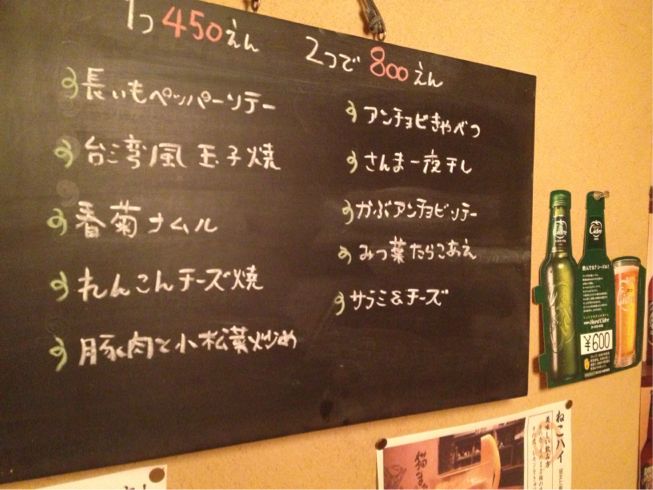 1つ450えん
2つで800えん
長いもペッパーソテー
台湾風玉子焼
春菊ナムル
れんこんチーズ焼
豚肉と小松菜炒め
アンチョビきゃべつ
さんま一夜干し
かぶアンチョビソテー
みつ葉たらこあえ
サラミ&チーズ
Hard Cidre
¥600
ねこハイ
美味しい飲み方